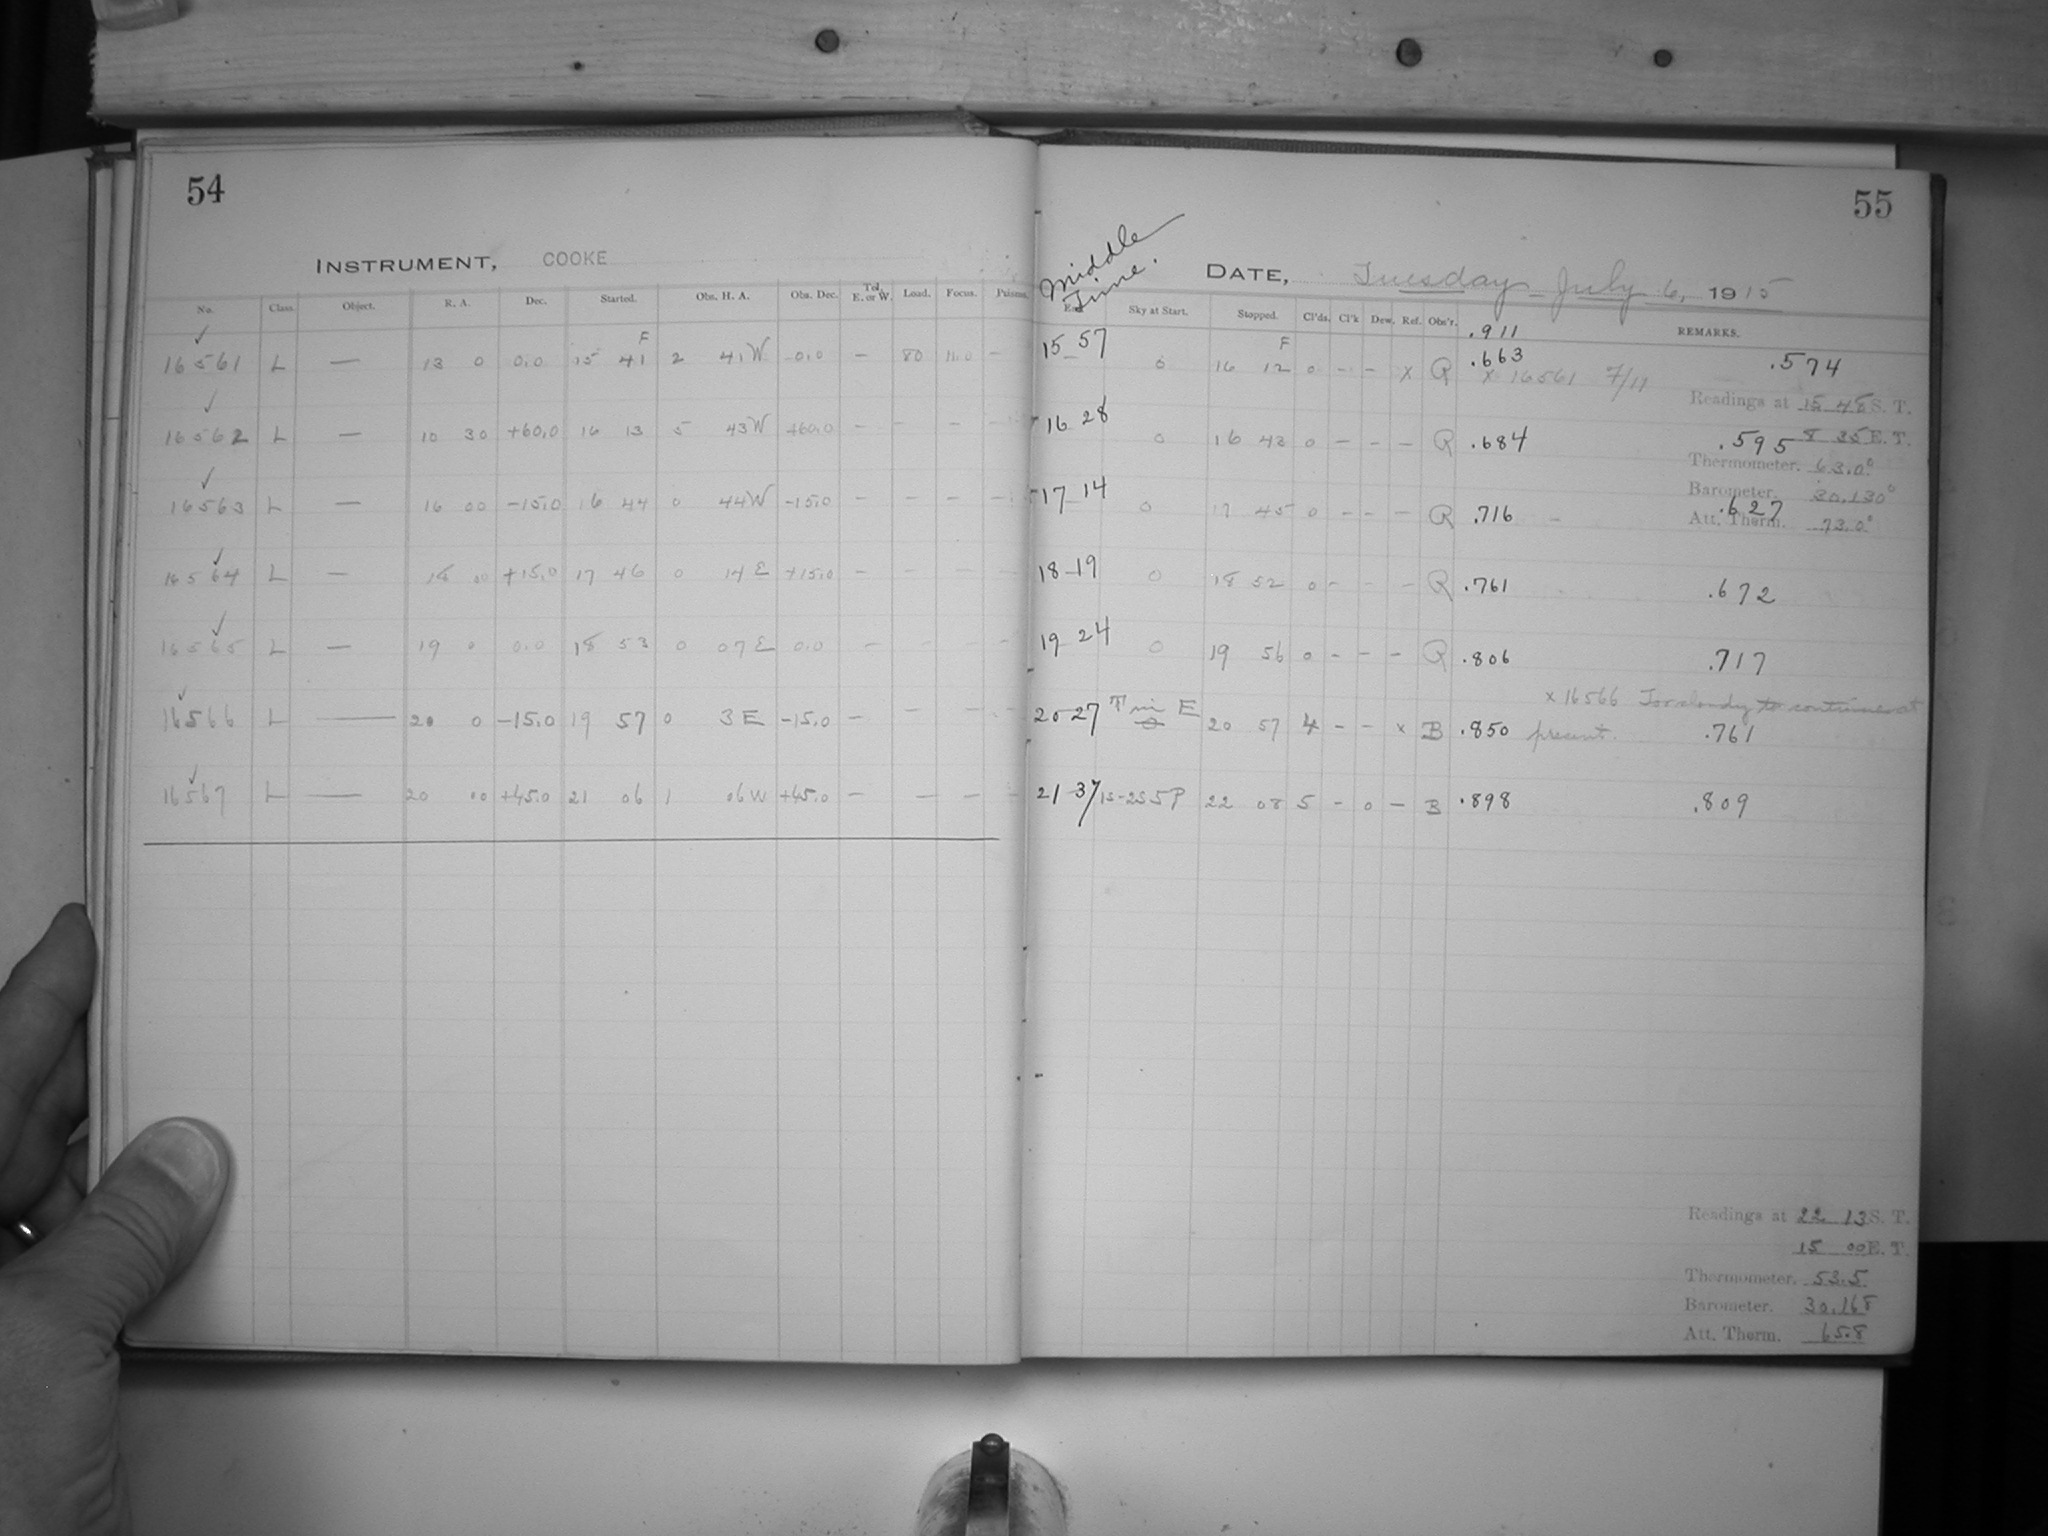 54
INSTRUMENT, COOKE
No. Class. Object. R. A. Dec. Started. Obs. H. A. Obs. Dec. Tel. E. or W. Load. Focus. Prisms.
✓ F
16561 L — 13 0 0.0 15 41 2 41 W 0.0 — 80 11.0 —
✓
16562 L — 10 30 +60.0 16 13 5 43 W +60.0 — — — —
✓
16563 L — 16 00 -15.0 16 44 0 44 W -15.0 — — — —
✓
16564 L — 18 00 +15.0 17 46 0 14 E +15.0 — — — —
✓
16565 L — 19 0 0.0 18 53 0 07 E 0.0 — — — —
✓
16566 L — 20 0 -15.0 19 57 0 3 E -15.0 — — — —
✓
16567 L — 20 00 +45.0 21 06 1 06 W +45.0 — — — —
55
Middle
Time.
DATE, Tuesday July 6, 1915
Sky at Start. Stopped. Cl'ds. Cl'k Dew. Ref. Obs'r. REMARKS.
.911
F
15 57 0 16 12 0 - - x R .663 .574
x 16561 7/11
Readings at 15 48 S. T.
8 35 E. T.
16 28 0 16 43 0 - - - R .684 .595
Thermometer. 63.0°
Barometer. 30.130°
17 14 0 17 45 0 - - - R .716 .627
Att. Therm. 73.0°
18-19 0 18 52 0 - - - R .761 .672
19 24 0 19 56 0 - - - R .806 .717
x 16566 Too cloudy to continue at
20-27 T in E 20 57 4 - - x B .850 present. .761
21-37 15-25 5P 22 08 5 - 0 - B .898 .809
Readings at 22 13 S. T.
15 00 E. T.
Thermometer. 53.5
Barometer. 30.168
Att. Therm. 65.8